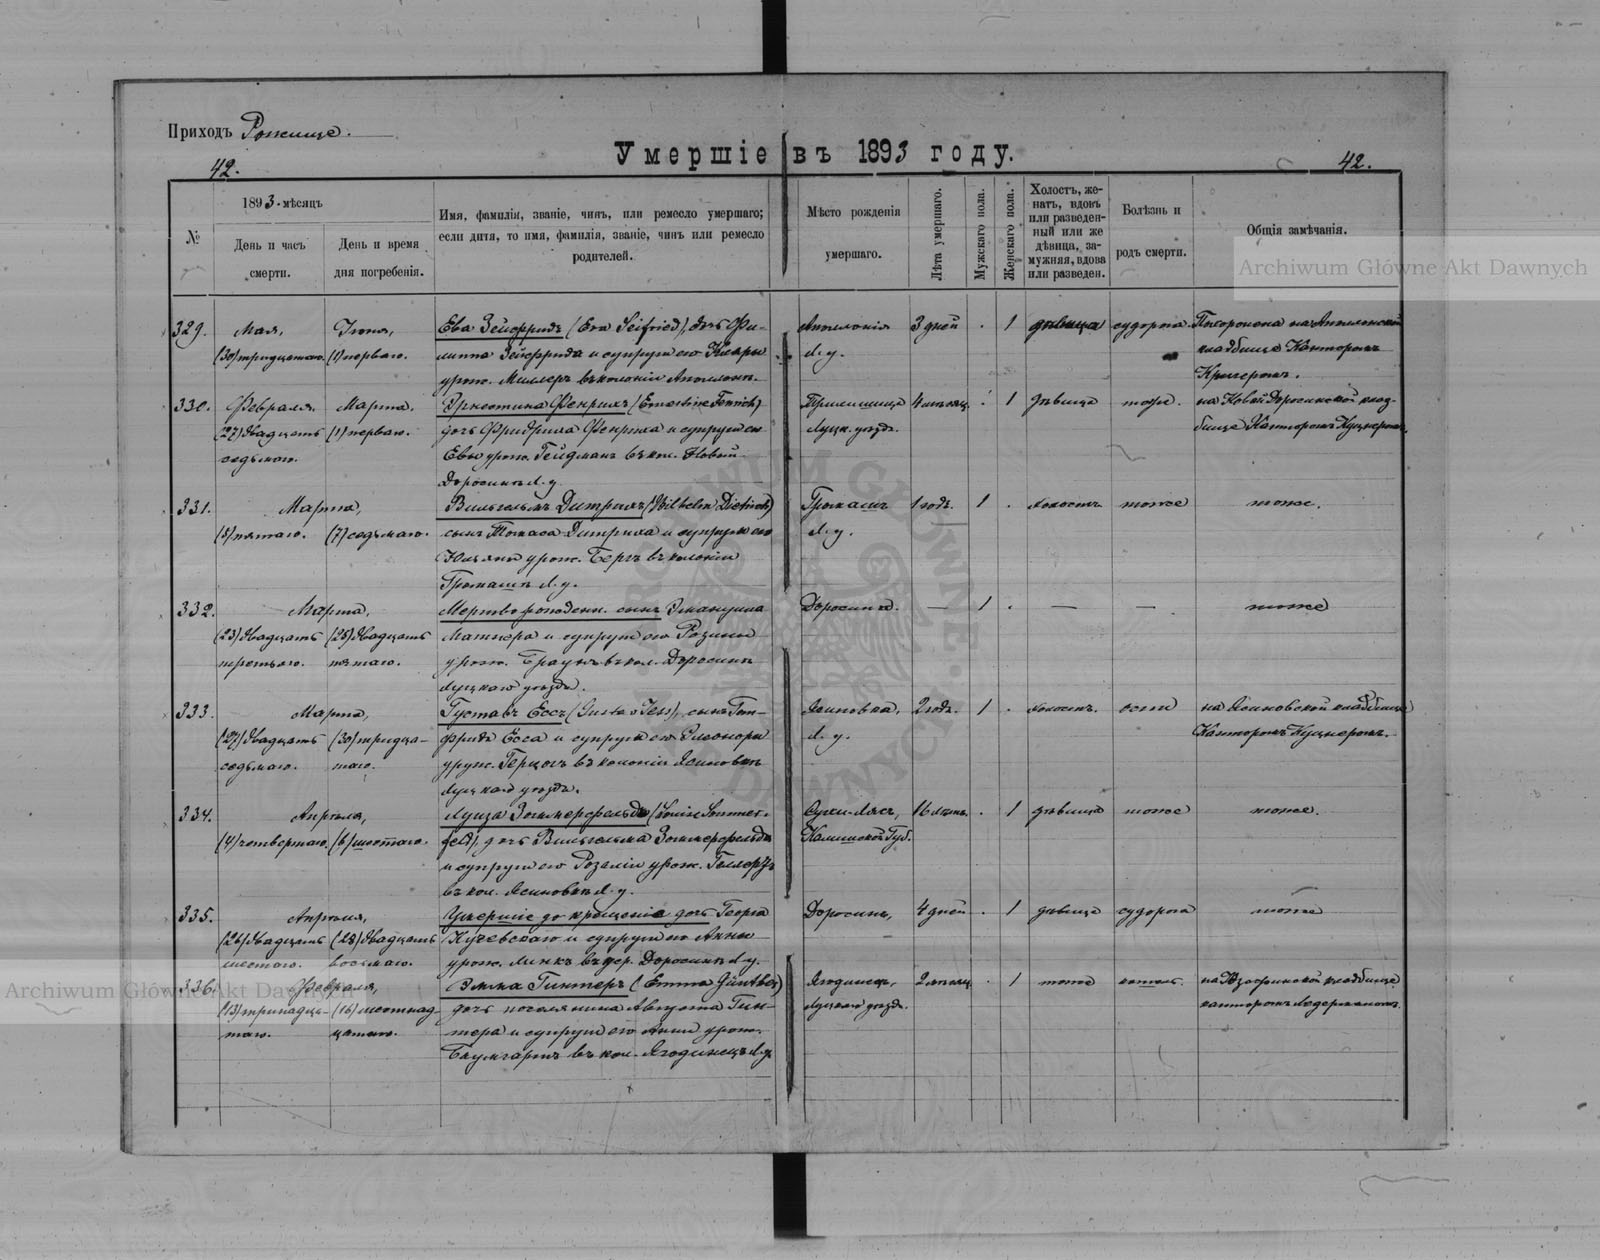 Приходъ Рожище.
Умершіе въ 1893 году.
42.
42.
№
1893. мѣсяцъ
День и часъ
смерти.
День и время
дня погребенія.
Имя, фамилія, званіе, чинъ, или ремесло умершаго;
если дитя, то имя, фамилія, званіе, чинъ или ремесло
родителей.
Мѣсто рожденія
умершаго.
Лѣта умершаго.
Мужскаго пола.
Женскаго пола.
Холостъ, же-
натъ, вдовъ
или разведен-
ный или же
дѣвица, за-
мужняя, вдова
или разведен.
Болѣзнь и
родъ смерти.
Общія замѣчанія.
Archiwum Główne Akt Dawnych
329.
Мая,
(30) тридцатаго.
Іюня,
(1) перваго.
Ева Зейфридъ (Eva Seifried), дочь Фи-
липпа Зейфрида и супруги его Клары
урож. Миллеръ въ колоніи Аполлоніи.
Аполлонія
Л. у.
3 дней
.
1
дѣвица
судорога.
Похоронена на Аполонской
кладбище Канторомъ
Кригеромъ.
330.
Февраля.
(27) двадцать
седьмого.
Марта.
(1) перваго.
Эрнестина Фенрихъ (Ernestine Fenrich)
дочь Фридриха Фенриха и супруги его
Евы урож. Гейдманъ въ кол. Новый-
Доросинъ Л. у.
Луцк. уѣзда.
4 мѣсяц.
.
1
дѣвица
тоже.
на Новой Доросинской клад-
бище Канторомъ Куцнеромъ.
331.
Марта,
(5) пятаго.
(7) седьмаго.
Вильгельмъ Дитрихъ (Wilhelm Dietrich)
сынъ Дитриха и супруги его
урож. Бергъ въ колоніи
Громашъ Л. у.
Громашъ
Л. у.
1 годъ.
1
.
холостъ.
тоже
тоже.
332.
Марта,
(23) двадцать
третьяго.
(25) двадцать
пятаго.
Мертворожденн. сынъ Эмануила
и супруги его Розины
урож. Браунъ въ кол. Доросинъ
Луцкаго уѣзда.
Доросинъ.
—
1
.
—
—
тоже
333.
Марта,
(27) двадцать
седьмаго.
(30) тридца-
таго.
Густавъ Ессъ (Gustav Jess), сынъ Гот-
фрида Есса и супруги его Элеоноры
урож. Герцогъ въ колоніи Ясиновка
Луцкаго уѣзда.
Ясиновка,
Л. у.
2 года.
1
.
холостъ.
оспы
на Ясиновской кладбище
Канторомъ Куцнеромъ.
334.
Апрѣля,
(4) четвертаго.
(6) шестаго.
Луиза Зоммерфельдъ (Louise Sommer-
feld), дочь Вильгельма Зоммерфельда
и супруги его Розаліи урож.
въ кол. Ясиновкѣ Л. у.
Губ.
16 лѣтъ.
.
1
дѣвица
тоже
тоже.
335.
Апрѣля,
(26) двадцать
шестаго.
(28) двадцать
восьмаго.
Умершіе до крещенія дочь Георга
Кучевскаго и супруги его Анны
урож. Линкъ въ дер. Доросинъ Л. у.
Доросинъ,
4 дней
.
1
дѣвица
судорога
тоже
336.
Февраля,
(13) тринадца-
таго.
(16) шестнад-
цатаго.
Эмма Гинтеръ (Emma Günther)
дочь поселянина Августа Гин-
тера и супруги его Анны урож.
Баумгартъ въ кол. Ягодинецъ Л. у.
Ягодинецъ,
Луцкаго уѣзда.
2 мѣсяц.
.
1
тоже
кашель.
кладбище
канторомъ Ледерманомъ.
Archiwum Główne Akt Dawnych
ARCHIWUM GŁÓWNE AKT DAWNYCH